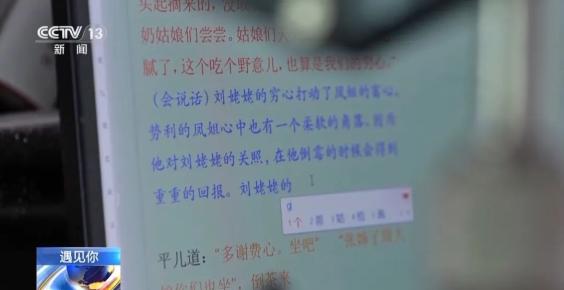 CCTV 13
新闻
头起摘来的,没敢
奶姑娘们尝尝。姑娘们天
腻了,这个吃个野意儿,也算是我们的穷心。”
(会说话)刘姥姥的穷心打动了凤姐的富心。
势利的凤姐心中也有一个柔软的角落。因为
他对刘姥姥的关照,在他倒霉的时候会得到
重重的回报。刘姥姥的
g
1个 2哥 3姑 4给 5高
平儿道:“多谢费心。坐吧” “张婶了周大
娘们也坐”,倒茶来
遇见你